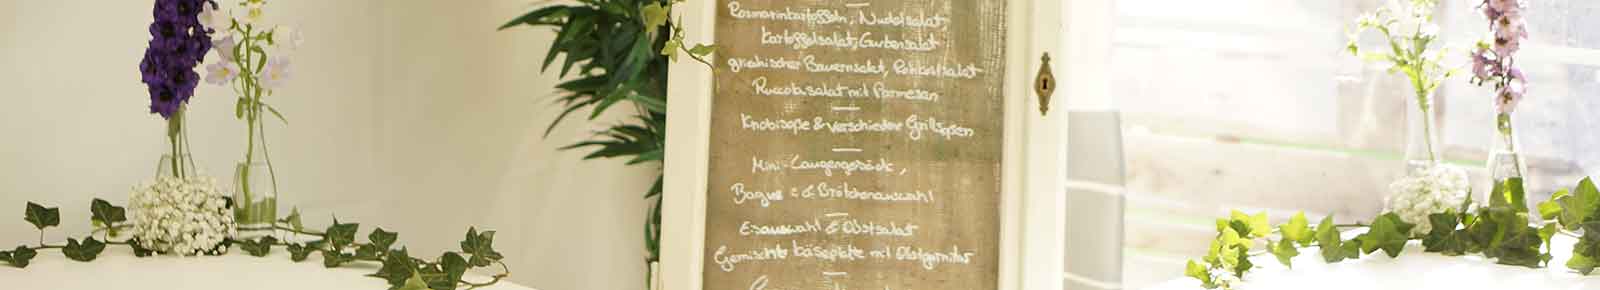 Rosmarinkartoffeln, Nudelsalat
Kartoffelsalat, Gurkensalat
griechischer Bauernsalat, Rohkostsalat
Ruccolasalat mit Parmesan
Knobisoße & verschiedene Grillsoßen
Mini-Laugengebäck,
Bague & Brötchenauswahl
Eisauswahl & Obstsalat
Gemischte Käseplatte mit Obstgarnitur